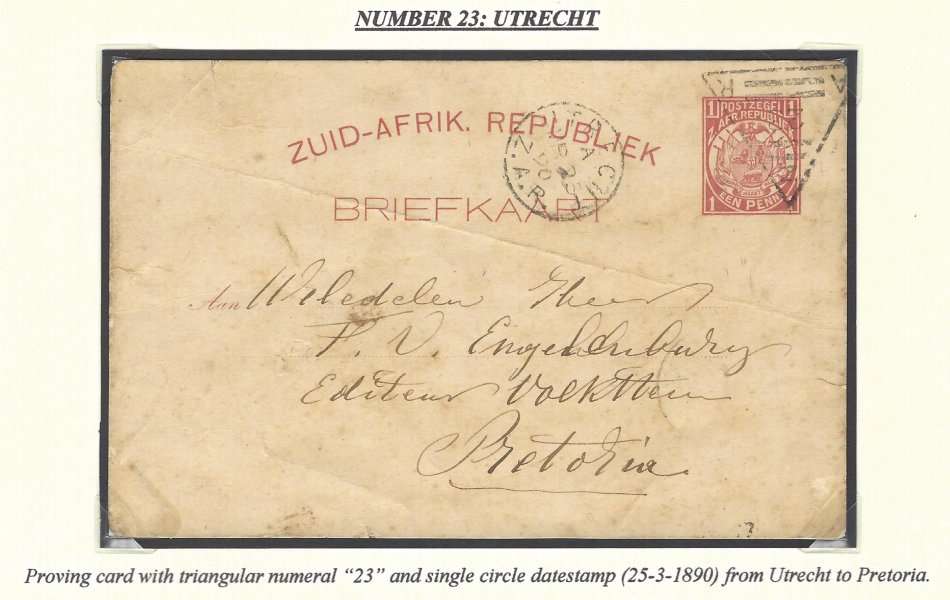 NUMBER 23: UTRECHT
ZUID-AFRIK. REPUBLIEK
BRIEFKAART
Z.A.R.
25
90
1 POSTZEGEL 1
Z. AFR. REPUBLIEK
1 EEN PENNY
Aan Weledelen Heer
F. V. Engelenburg
Editeur Volkstem
Pretoria.
Proving card with triangular numeral “23” and single circle datestamp (25-3-1890) from Utrecht to Pretoria.